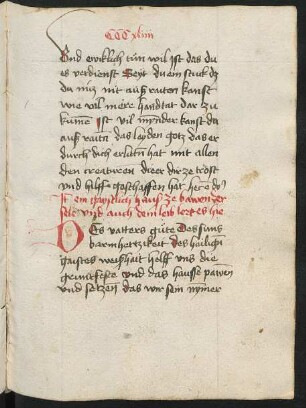 CCC xliiii
Vnd ewiklich tun wil ist das du
es verdienst Seyt du ein stuck dz
du nütz mit auß raiten kanst
wie vil mere handtat dar zu
kume Ist vil mynder kanst du
auß raitn das leyden gotz das er
durch dich erlitn hat mit allen
den creaturen die er dir ze trost
und hilff geschaffen hat
It ein gaystlich hauß ze bawen der
sele und auch dem leib lert es hie
Des vatters güte Des suns
barmhertzikeit des heilign
gaistes weißhait helff uns die
gruntfeste und das hausse pawen
und setzen das wir sein nymer